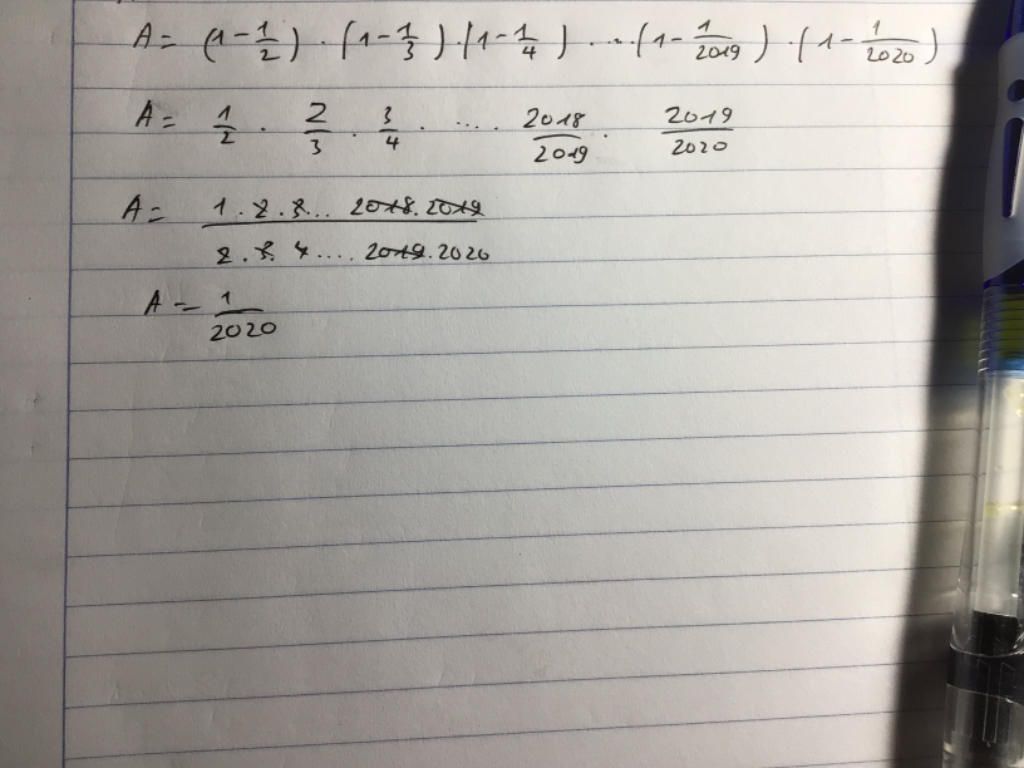 A = (1 - 1/2) . (1 - 1/3) . (1 - 1/4) . ... (1 - 1/2019) . (1 - 1/2020)
A = 1/2 . 2/3 . 3/4 . .... 2018/2019 . 2019/2020
A = 1 . 2 . 3 ... 2018 . 2019 / 2 . 3 . 4 .... 2019 . 2020
A = 1/2020